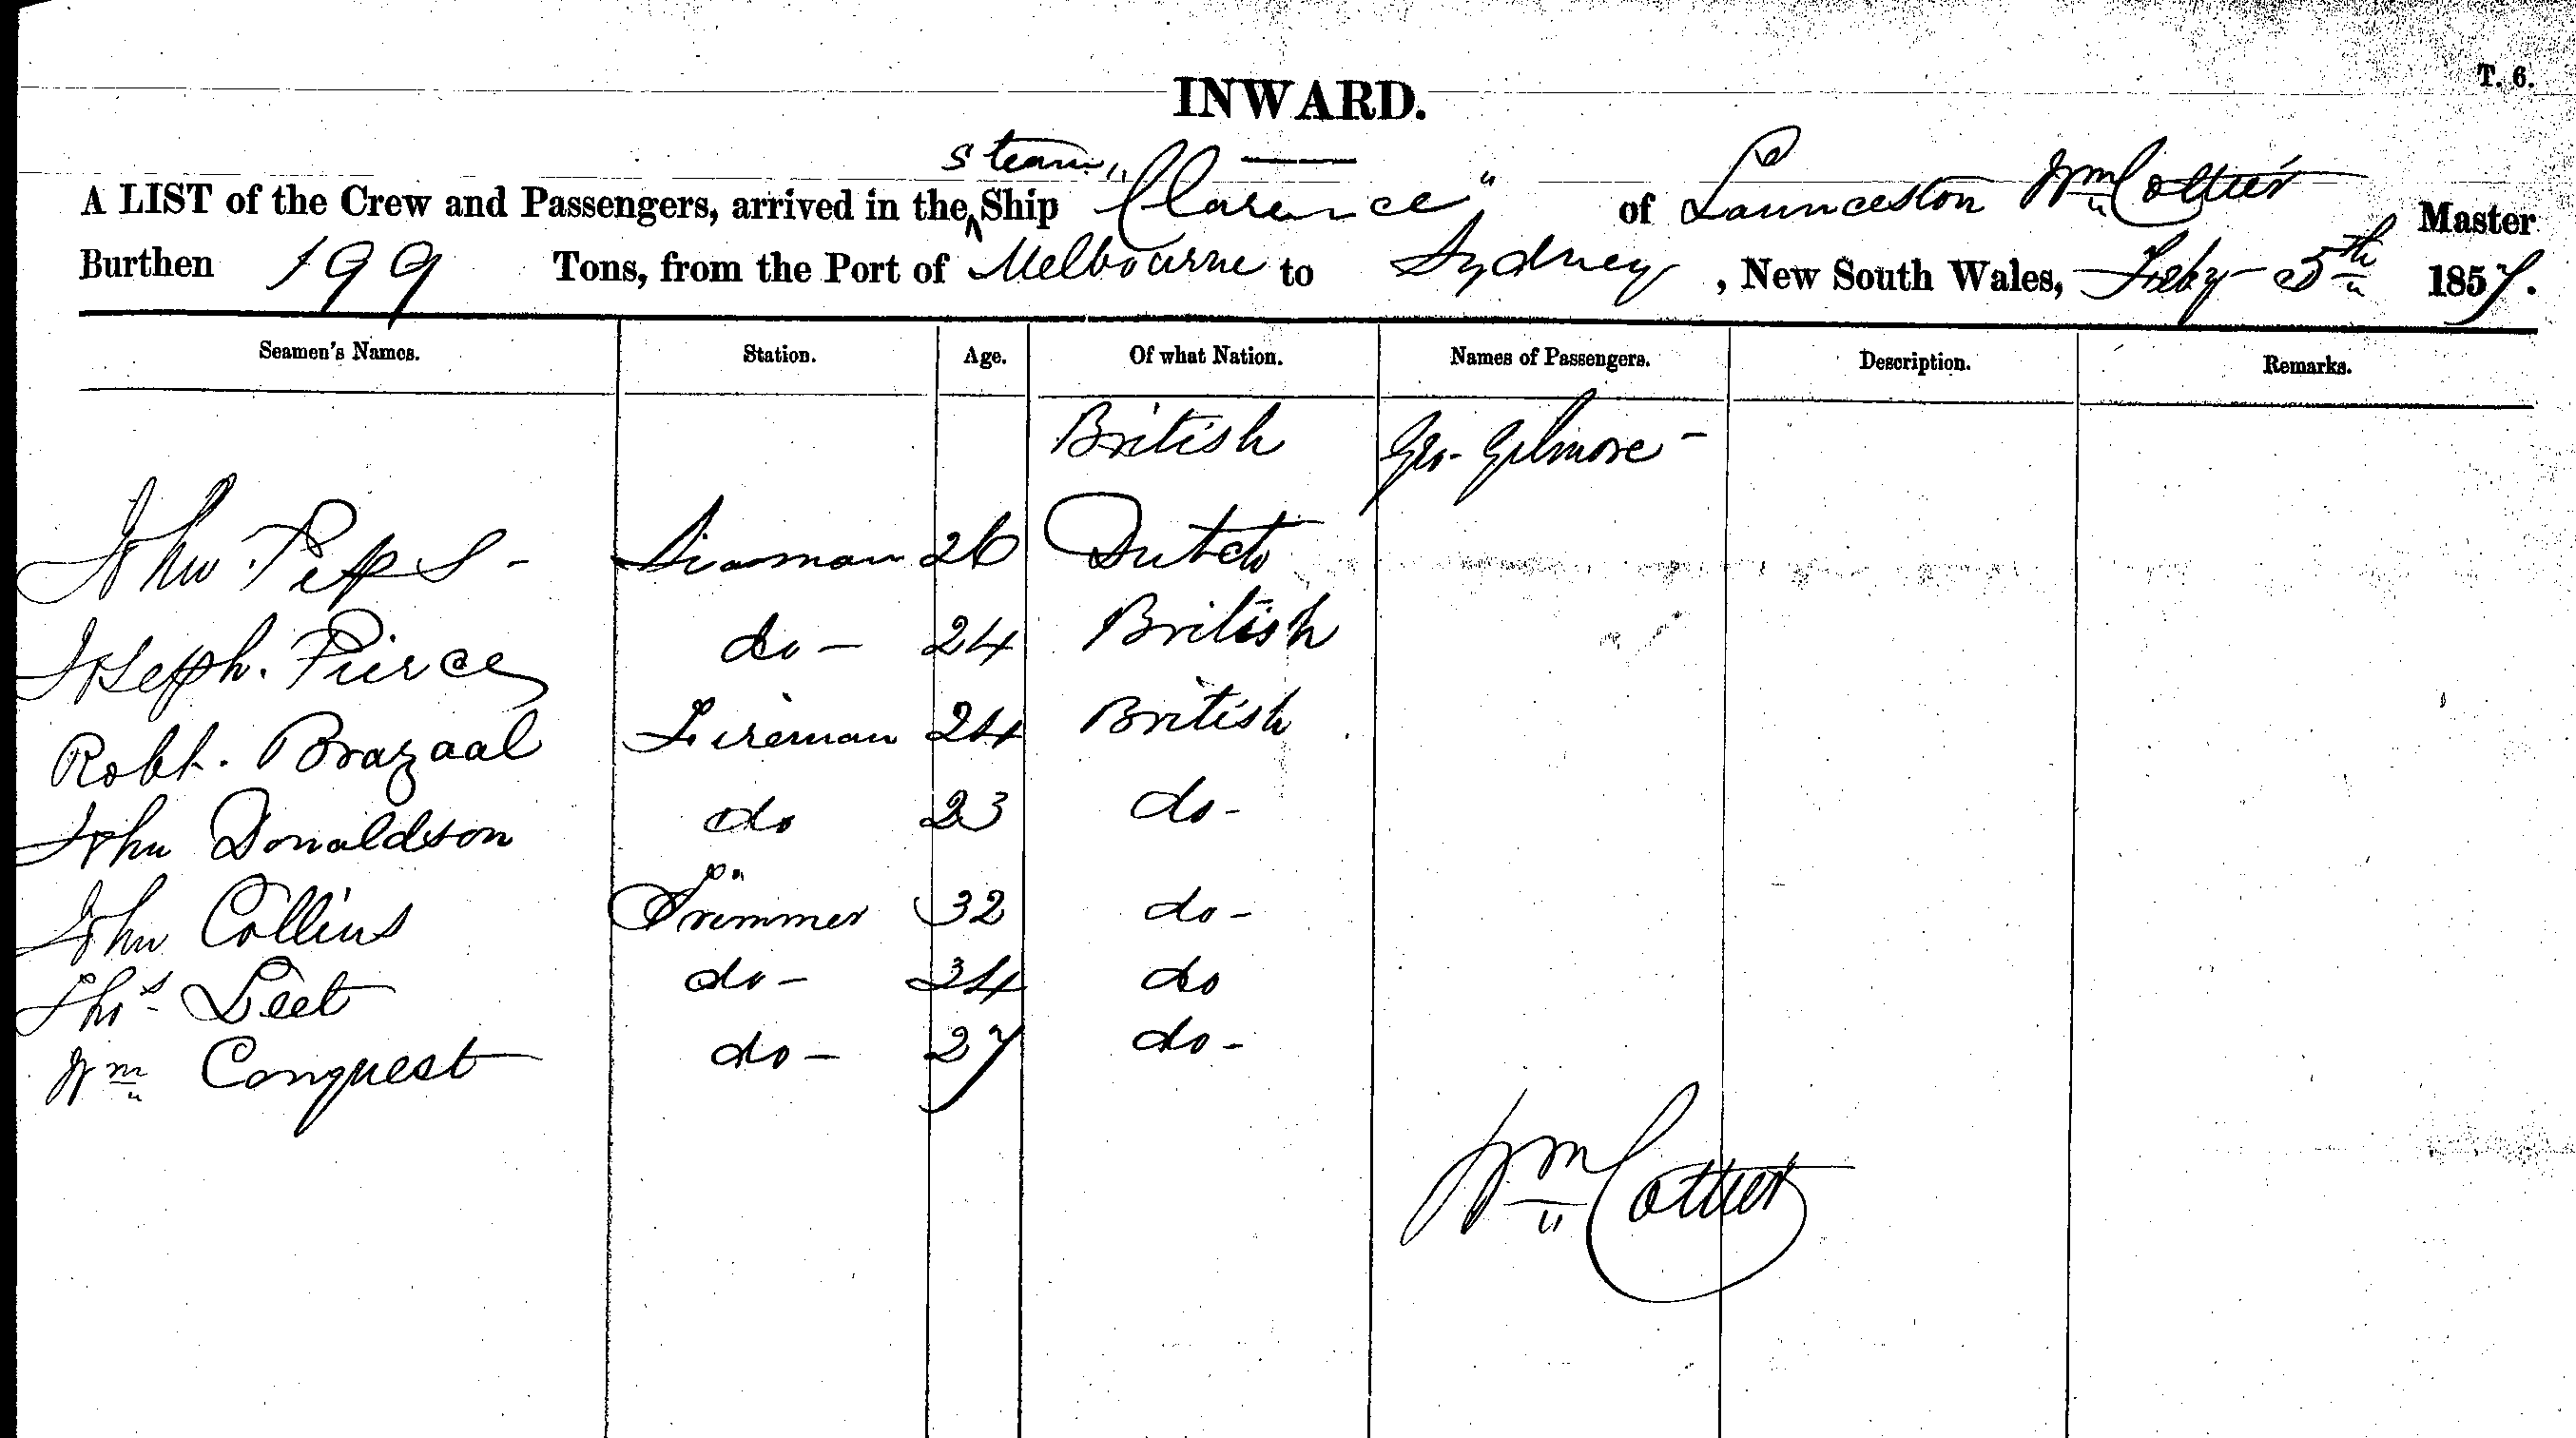 T. 6.
INWARD.
A LIST of the Crew and Passengers, arrived in the steam Ship "Clarence" of Launceston Wm Cottier Master
Burthen 199 Tons, from the Port of Melbourne to Sydney, New South Wales, Feby 5th 1857.
Seamen's Names. Station. Age. Of what Nation. Names of Passengers. Description. Remarks.
British Geo- Gilmore -
John Peps - Seaman 26 Dutch
Joseph. Pierce do - 24 British
Robt. Brazaal Fireman 24 British
John Donaldson do 23 do -
John Collins Trimmer 32 do -
Thos Leet do - 34 do
Wm Conquest do - 27 do -
Wm Cottier